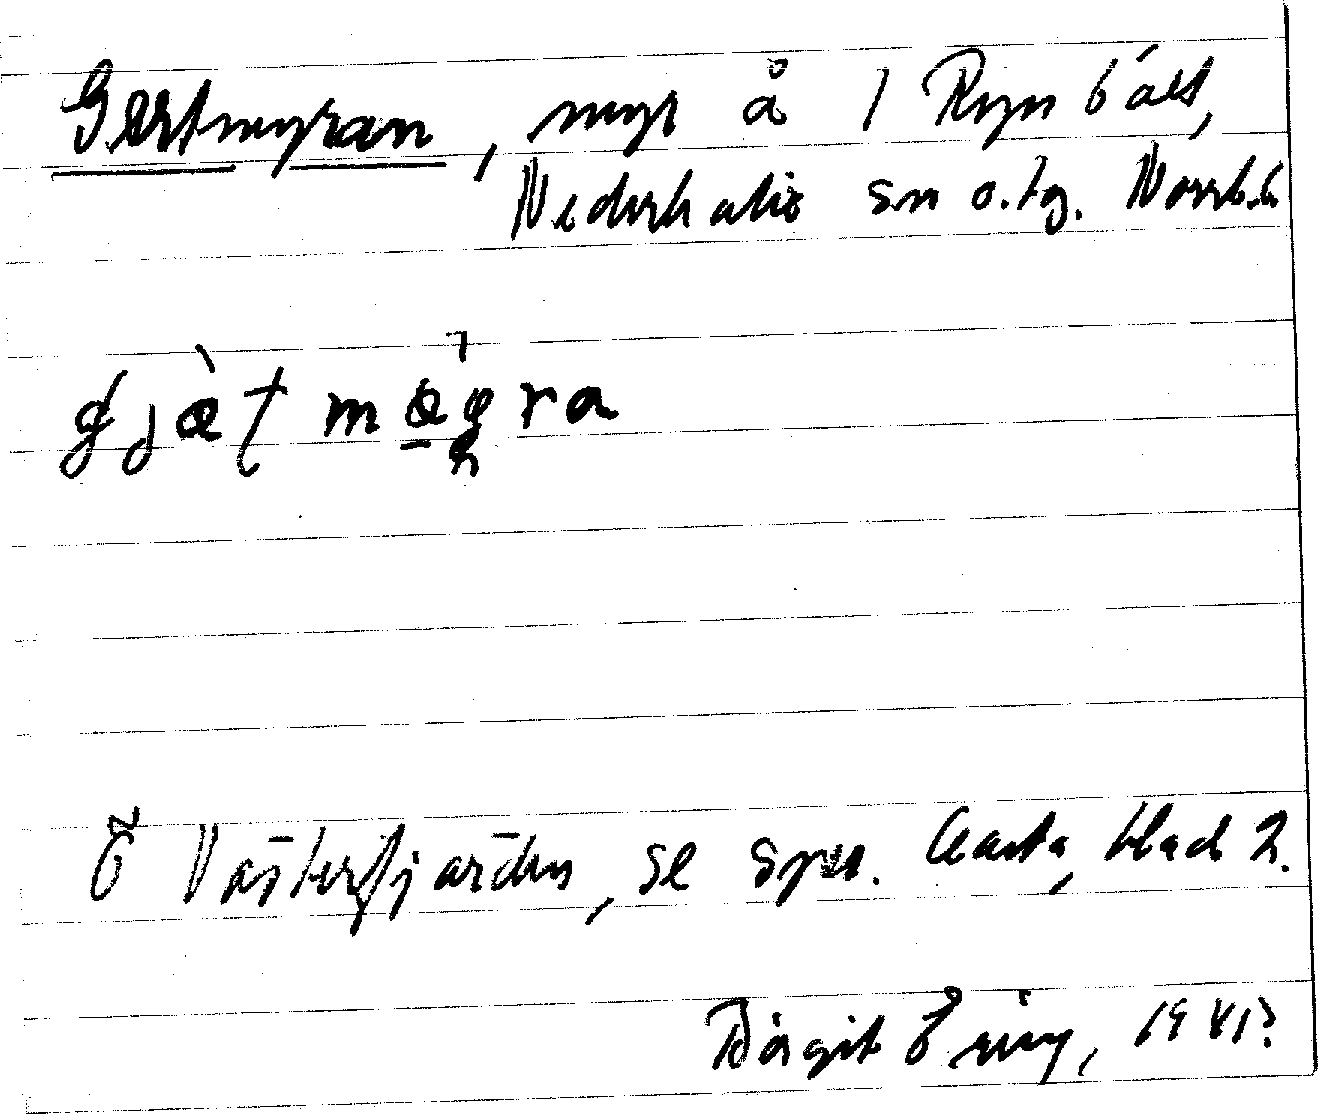 Gertmyran, myr å 1 Ryn 6 ält,
Nederkalix sn o. tg. Norrb. l.
gjæt mæra
Ö Västerfjärden, se spec. karta, blad 2.
Birgit 1941?